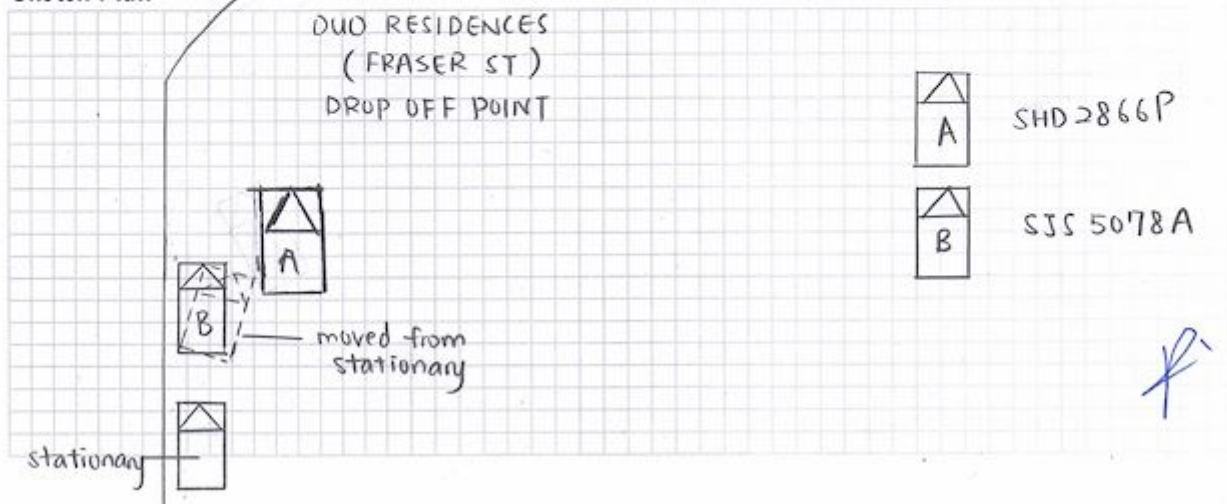 DUO RESIDENCES
(FRASER ST)
DROP OFF POINT
A SHD2866P
B SJS 5078A
A
B
moved from
stationary
stationary